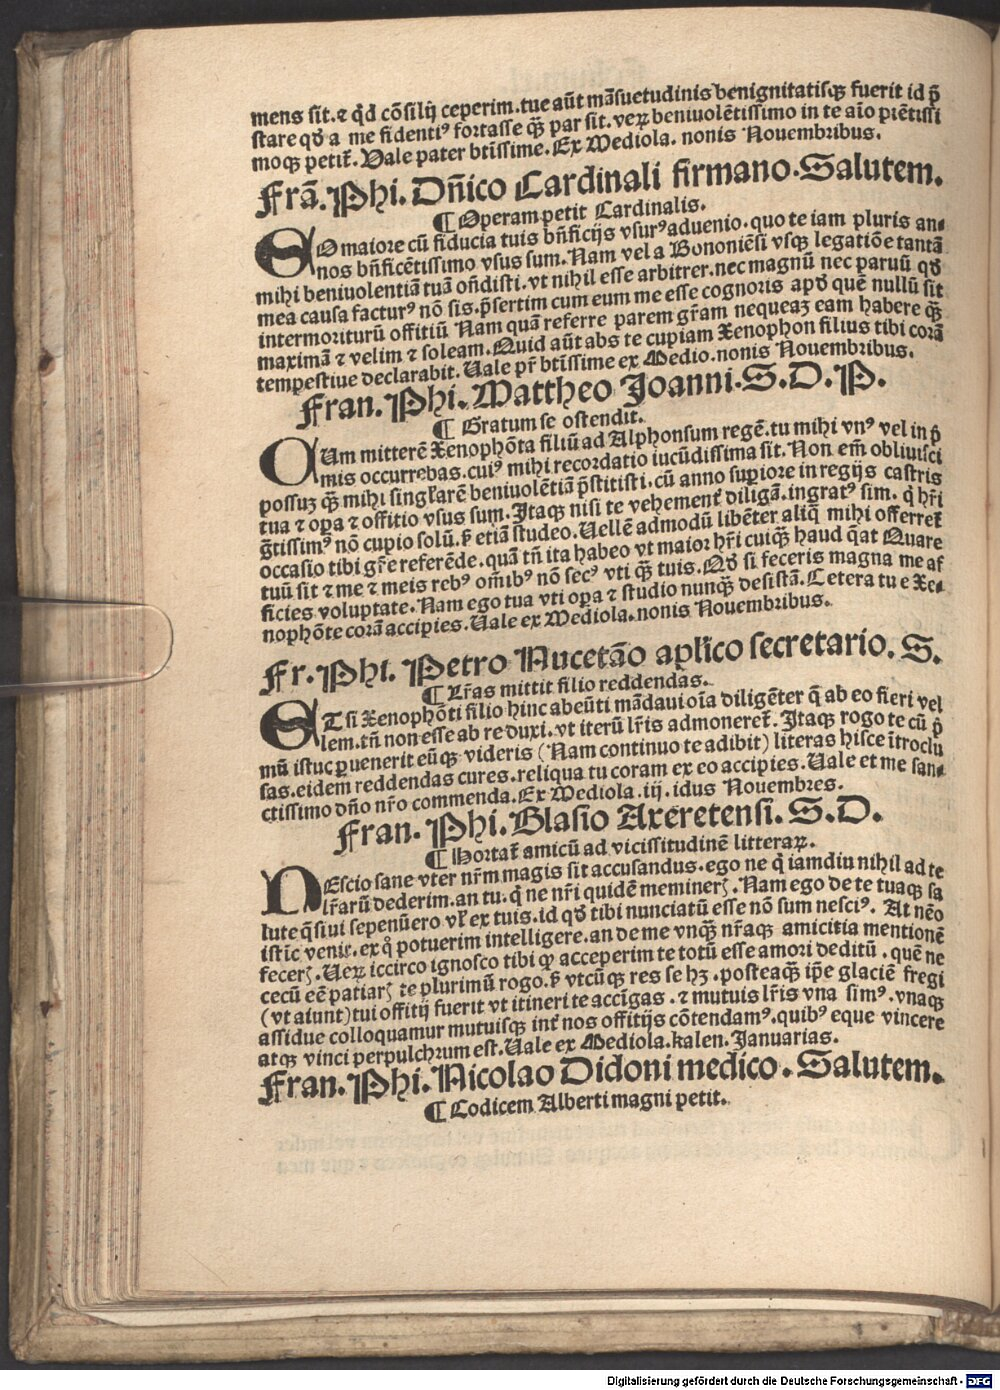 mens sit.⁊ qd̓ cōsilij ceperim.tue aūt māsuetudinis benignitatisqꝫ fuerit id p̄
stare qd̓ a me fidentiꝰ fortasse qꝫ̄ par sit.veꝝ beniuolētissimo in te aīo piētissi
moqꝫ petit᷑. Vale pater btīssime.Ex Mediola. nonis Nouembribus.
Frā.Phi. Dn̄ico Cardinali firmano.Salutem.
¶ Operam petit Cardinalis.
SO maiore cū fiducia tuis bn̄ficijs vsurꝰ aduenio.quo te iam pluris an⸗
nos bn̄ficētissimo vsus sum.Nam vel a Bononiēsi vsqꝫ legatiōe tantā
mihi beniuolentiā tuā on̄disti.vt nihil esse arbitrer.nec magnū nec paruū qd̓
mea causa facturꝰ nō sis.p̄sertim cum eum me esse cognoris apd̓ quē nullū sit
intermoriturū offitiū Nam quā referre parem gr̄am nequeaꝫ eam habere qꝫ̄
maximā ⁊ velim ⁊ soleam.Quid aūt abs te cupiam Xenophon filius tibi corā
tempestiue declarabit.Uale pr̄ btīssime ex Medio.nonis Nouembribus.
Fran.Phi.Mattheo Joanni.S.D.P.
¶ Gratum se ostendit.
CUm mitterē Xenophōta filiū ad Alphonsum regē.tu mihi vnꝰ vel in p̄
mis occurrebas.cuiꝰ mihi recordatio iucūdissima sit. Non em̄ obliuisci
possuꝫ qꝫ̄ mihi singl̓arē beniuolētiā p̄stitisti.cū anno supiore in regijs castris
tua ⁊ opa ⁊ offitio vsus sum.Itaqꝫ nisi te vehement᷑ diligā.ingratꝰ sim. q̓ hr̄i
gr̄tissimꝰ nō cupio solū.ꝫ etiā studeo.Uellē admodū libēter aliq̄ mihi offerret᷑
occasio tibi gr̄e referēde.quā tn̄ ita habeo vt maior hr̄i cuiqꝫ̄ haud q̄at Quare
tuū sit ⁊ me ⁊ meis rebꝰ om̄ibꝰ nō secꝰ vti qꝫ̄ tuis.Qd̓ si feceris magna me af
ficies voluptate.Nam ego tua vti opa ⁊ studio nunqꝫ̄ desistā.Cetera tu e Xe⸗
nophōte corā accipies.Uale ex Mediola.nonis Nouembribus.
Fr.Phi. Petro Nucetāo apl̓ico secretario.S.
¶ Lr̄as mittit filio reddendas.
ETsi Xenophōti filio hinc abeūti mādaui oīa diligēter q̄ ab eo fieri vel
lem.tn̄ non esse ab re duxi.vt iterū lr̄is admoneret᷑. Itaqꝫ rogo te cū p̄
mū istuc puenerit eūqꝫ videris (Nam continuo te adibit) literas hisce ītroclu
sas.eidem reddendas cures.reliqua tu coram ex eo accipies.Uale et me san⸗
ctissimo dn̄o nr̄o commenda.Ex Mediola.iij.idus Nouembres.
Fran.Phi.Blasio Axeretensi.S.D.
¶ Hortat᷑ amicū ad vicissitudinē litteraꝝ.
NEscio sane vter nr̄m magis sit accusandus.ego ne q̓ iamdiu nihil ad te
lr̄arū dederim.an tu.q̓ ne nr̄i quidē memineris. Nam ego de te tuaqꝫ sa
lute q̄siui sepenūero vl̓ ex tuis.id qd̓ tibi nunciatū esse nō sum nesciꝰ. At nēo
istīc venit.ex q̊ potuerim intelligere.an de me vnqꝫ̄ nr̄aqꝫ amicitia mentionē
feceris.Ueꝝ iccirco ignosco tibi qꝙ acceperim te totū esse amori deditū.quē ne
cecū eē patiaris te plurimū rogo.ꝫ vtcūqꝫ res se hꝫ.posteaqꝫ̄ ip̄e glaciē fregi
(vt aiunt)tui offitij fuerit vt itineri te accīgas.⁊ mutuis lr̄is vna simꝰ.vnaqꝫ
assidue colloquamur mutuisqꝫ int᷑ nos offitijs cōtendamꝰ.quibꝰ eque vincere
atqꝫ vinci perpulchrum est.Uale ex Mediola.kalen.Januarias.
Fran.Phi.Nicolao Didoni medico.Salutem.
¶ Codicem Alberti magni petit.
Digitalisierung gefördert durch die Deutsche Forschungsgemeinschaft - DFG